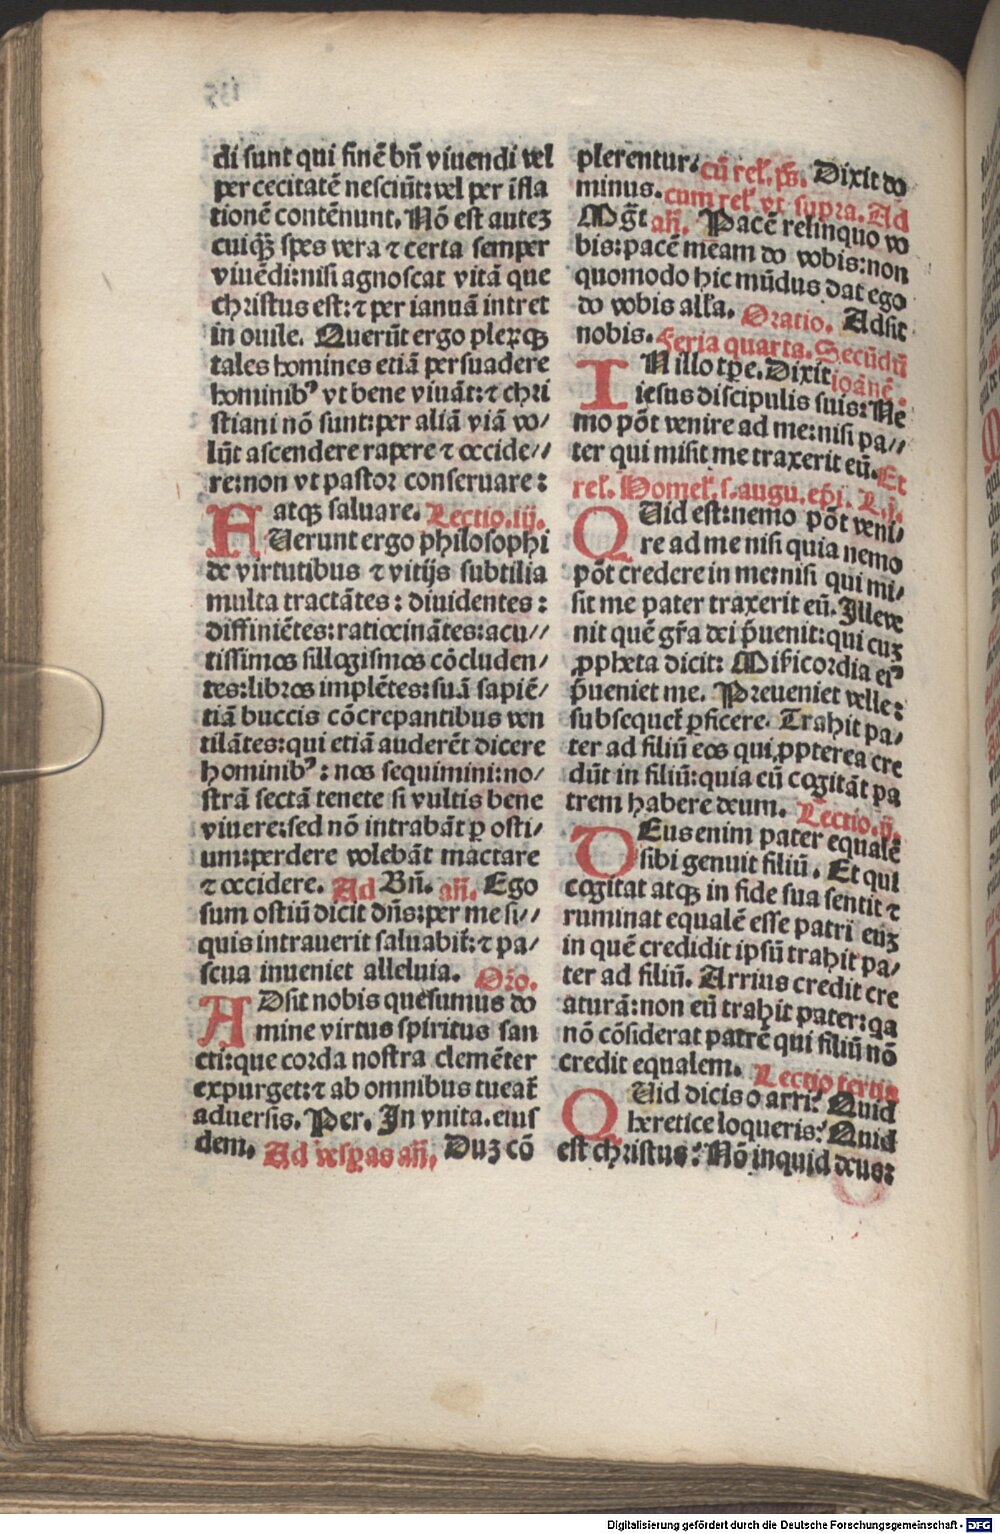 di sunt qui finē bn̄ viuendi vel
per cecitatē nesciūt: vel per ifla
tionē contēnunt. Nō est autez
cuiqꝫ spes vera ⁊ certa semper
viuēdi: nisi agnoscat vitā que
christus est: ⁊ per ianuā intret
in ouile. Querūt ergo pleꝝqꝫ
tales homines etiā persuadere
hominibꝰ vt bene viuāt: ⁊ chri
stiani nō sunt: per aliā viā vo/
lūt ascendere rapere ⁊ occide//
re: non vt pastor conseruare:
atqꝫ saluare. Lectio .iij.
FUerunt ergo philosophi
de virtutibus ⁊ vitijs subtilia
multa tractātes: diuidentes:
diffiniētes: ratiocinātes: acu//
tissimos sillogismos cōcluden/
tes: libros implētes: suā sapiē/
tiā buccis cōcrepantibus ven
tilātes: qui etiā auderēt dicere
hominibꝰ: nos sequimini: no/
strā sectā tenete si vultis bene
viuere: sed nō intrabāt ꝑ osti/
um: perdere volebāt mactare
⁊ occidere. Ad Bn̄. an̄. Ego
sum ostiū dicit dn̄s: per me si//
quis intrauerit saluabit̄: ⁊ pa/
scua inueniet alleluia. Oro.
ADsit nobis quesumus do
mine virtus spiritus san
cti: que corda nostra clemēter
expurget: ⁊ ab omnibus tueat̄
aduersis. Per. In vnita. eius
dem. Ad vesꝑas an̄. Duz cō
plerentur. cū rel̄. ps̄. Dixit do
minus. cum rel̄ vt supra. Ad
Mḡt an̄. Pacē relinquo vo
bis: pacē meam do vobis: non
quomodo hic mūdus dat ego
do vobis alla. Oratio. Adsit
nobis. Feria quarta. Secūdū
IN illo tpe. Dixit ioānē.
iesus discipulis suis: Ne
mo pōt venire ad me: nisi pa//
ter qui misit me traxerit eū. Et
rel̄. Homel̄. s. augu. ep̄i. L. j.
QUid est: nemo pōt veni/
re ad me nisi quia nemo
pōt credere in me: nisi qui mi/
sit me pater traxerit eū. Ille ve
nit quē gr̄a dei p̄uenit: qui cuz
ꝓpheta dicit: Mis̄icordia eiꝰ
p̄ueniet me. Preueniet velle:
subsequet̄ ꝑficere. Trahit pa/
ter ad filiū eos qui ꝓpterea cre
dūt in filiū: quia eū cogitāt pa
trem habere deum. Lectio .ij.
DEus enim pater equalē
sibi genuit filiū. Et qui
cogitat atqꝫ in fide sua sentit ⁊
ruminat equalē esse patri eūz
in quē credidit ipsū trahit pa/
ter ad filiū. Arrius credit cre
aturā: non eū trahit pater: qa
nō cōsiderat patrē qui filiū nō
credit equalem. Lectio tertia
QUid dicis o arri? Quid
heretice loqueris? Quid
est christus? Nō inquid deus:
Digitalisierung gefördert durch die Deutsche Forschungsgemeinschaft - DFG